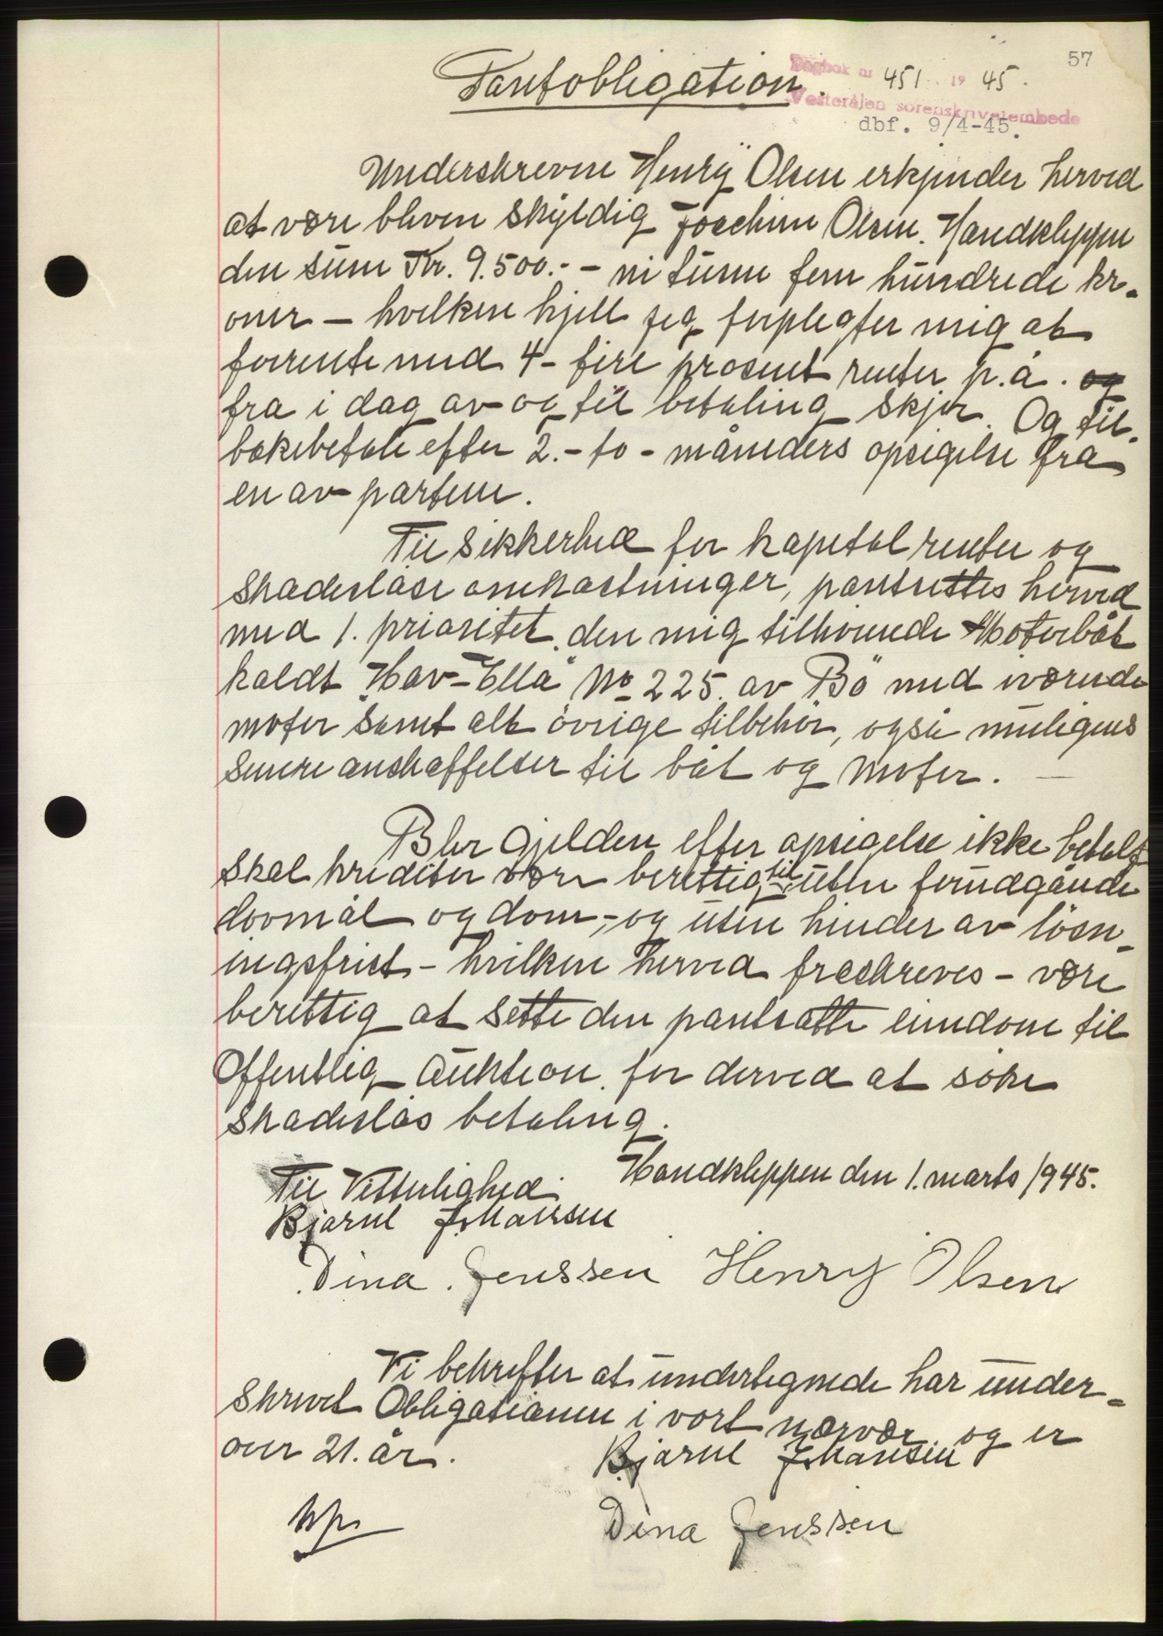 57
Dagbok nr 451 19 45.
Vesterålen sorenskriverembede
dbf. 9/4-45.
Pantobligation.
Underskrevne Henry Olsen erkjender herved
at være bleven skyldig Joachim Olsen. Handkleppen
den sum Kr. 9.500.- - ni tusen fem hundrede kr-
oner - hvilken gjell jeg forplegter mig at
forrente med 4- fire prosent renter p.a. og
fra i dag av og til betaling skjer. Og til-
bakebetale efter 2.- to - måneders opsigelse fra
en av partene.
Til sikkerhed for kapital renter og
skadesløse omkostninger, pantsettes herved
med 1. prioritet, den mig tilhørende Motorbåt
kaldt "Hav-Ella" No 225. av Bø med iværende
motor samt alt øvrige tilbehør, også muligens
senere anskaffelser til båt og motor. -
Blir gjelden efter opsigelse ikke betalt
skal kreditor være berettig til uten forudgående
lovmål og dom,- og uten hinder av løsn-
ingsfrist - hvilken herved fraskreves - være
berettig at sette den pantsatte eiendom til
Offentlig Auktion. for derved at søke
skadesløs betaling.
Handkleppen den 1. marts 1945.
Til Vitterlighed.
Bjarne J. Hansen
Dina Jenssen Henry Olsen
Vi bekrefter at undertegnede har under-
skrevet Obligasionen i vort nærvær og er
over 21. år.
Bjarne J. Hansen
Dina Jenssen